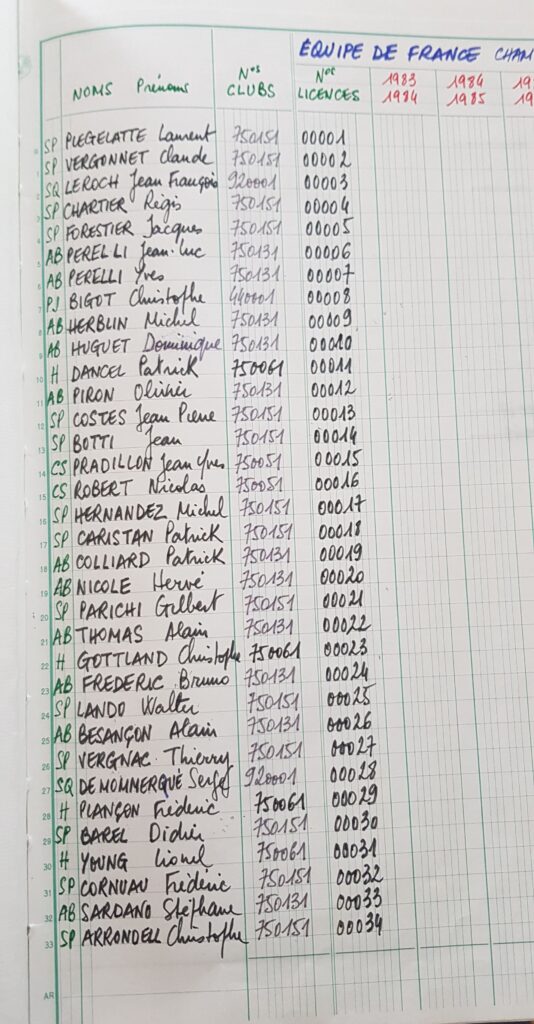 ÉQUIPE DE FRANCE CHAM
NOMS Prénoms Nos CLUBS Nos LICENCES 1983 1984 1984 1985
SP PLEGELATTE Laurent 750151 00001
SP VERGONNET Claude 750151 00002
SQ LEROCH Jean François 920001 00003
SP CHARTIER Régis 750151 00004
SP FORESTIER Jacques 750151 00005
AB PERELLI Jean-Luc 750131 00006
AB PERELLI Yves 750131 00007
PJ BIGOT Christophe 440001 00008
AB HERBLIN Michel 750131 00009
AB HUGUET Dominique 750131 00010
H DANCEL Patrick 750061 00011
AB PIRON Olivier 750131 00012
SP COSTES Jean Pierre 750151 00013
SP BOTTI Jean 750151 00014
CS PRADILLON Jean Yves 750051 00015
CS ROBERT Nicolas 750051 00016
SP HERNANDEZ Michel 750151 00017
SP CARISTAN Patrick 750151 00018
AB COLLIARD Patrick 750131 00019
AB NICOLE Hervé 750131 00020
SP PARICHI Gilbert 750151 00021
AB THOMAS Alain 750131 00022
H GOTTLAND Christophe 750061 00023
AB FREDERIC Bruno 750131 00024
SP LANDO Walter 750151 00025
AB BESANÇON Alain 750131 00026
SP VERGNAC Thierry 750151 00027
SQ DEMOMMERQUÉ Serge 920001 00028
H PLANÇON Fréderic 750061 00029
SP BAREL Didier 750151 00030
H YOUNG Lionel 750061 00031
SP CORNUAU Frédéric 750151 00032
AB SARDANO Stéphane 750131 00033
SP ARRONDELL Christophe 750151 00034
AR